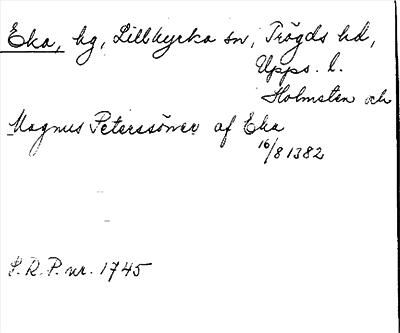 Eka, hg, Lillkyrka sn, Trögds hd,
Upps. l.
Holmsten och
Magnus Peterssöner af Eka
16/8 1382
S.R.P. nr. 1745